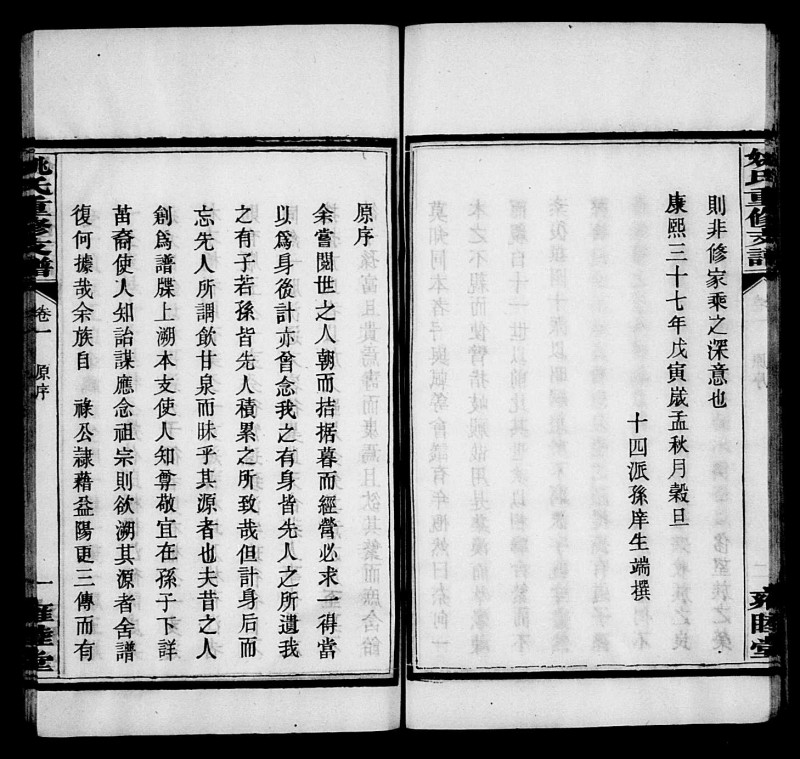 姚氏重修支譜
則非修家乘之深意也
康熙三十七年戊寅嵗孟秋月榖旦
十四派孫庠生端撰
雍睦堂
原序
余嘗閱世之人朝而拮据暮而經營必求一得當
以爲身後計亦曾念我之有身皆先人之所遺我
之有子若孫皆先人積累之所致哉但計身后而
忘先人所謂飲甘泉而昧乎其源者也夫昔之人
創爲譜牒上溯本支使人知尊敬宜在孫子下詳
苗裔使人知詒謀應念祖宗則欲溯其源者舍譜
復何據哉余族自 祿公隷藉益陽更三傳而有
姚氏重修支譜
卷一
原序
一
雍睦堂